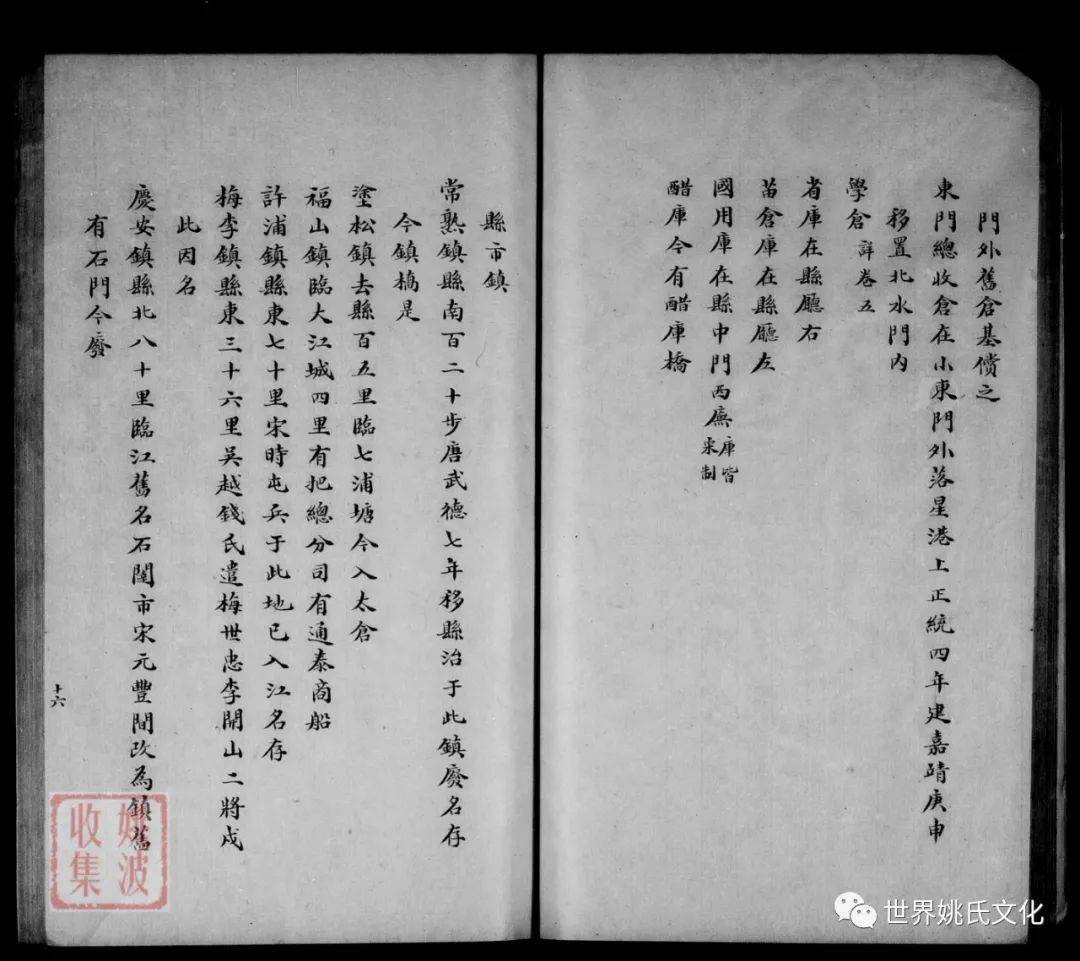 門外舊倉基償之
東門總收倉在小東門外落星港上正統四年建嘉靖庚申
移置北水門内
學倉詳卷五
省庫在縣廳右
苗倉庫在縣廳左
國用庫在縣中門西廡庫皆宋制
醋庫今有醋庫橋
縣市鎮
常熟鎮縣南百二十步唐武德七年移縣治于此鎮廢名存
今鎮橋是
塗松鎮去縣百五里臨七浦塘今入太倉
福山鎮臨大江城四里有把總分司有通泰商船
許浦鎮縣東七十里宋時屯兵于此地已入江名存
梅李鎮縣東三十六里吳越錢氏遣梅世忠李開山二將戍
此因名
慶安鎮縣北八十里臨江舊名石闥市宋元豐間改為鎮舊
有石門今廢
十六
姚波
收集
世界姚氏文化